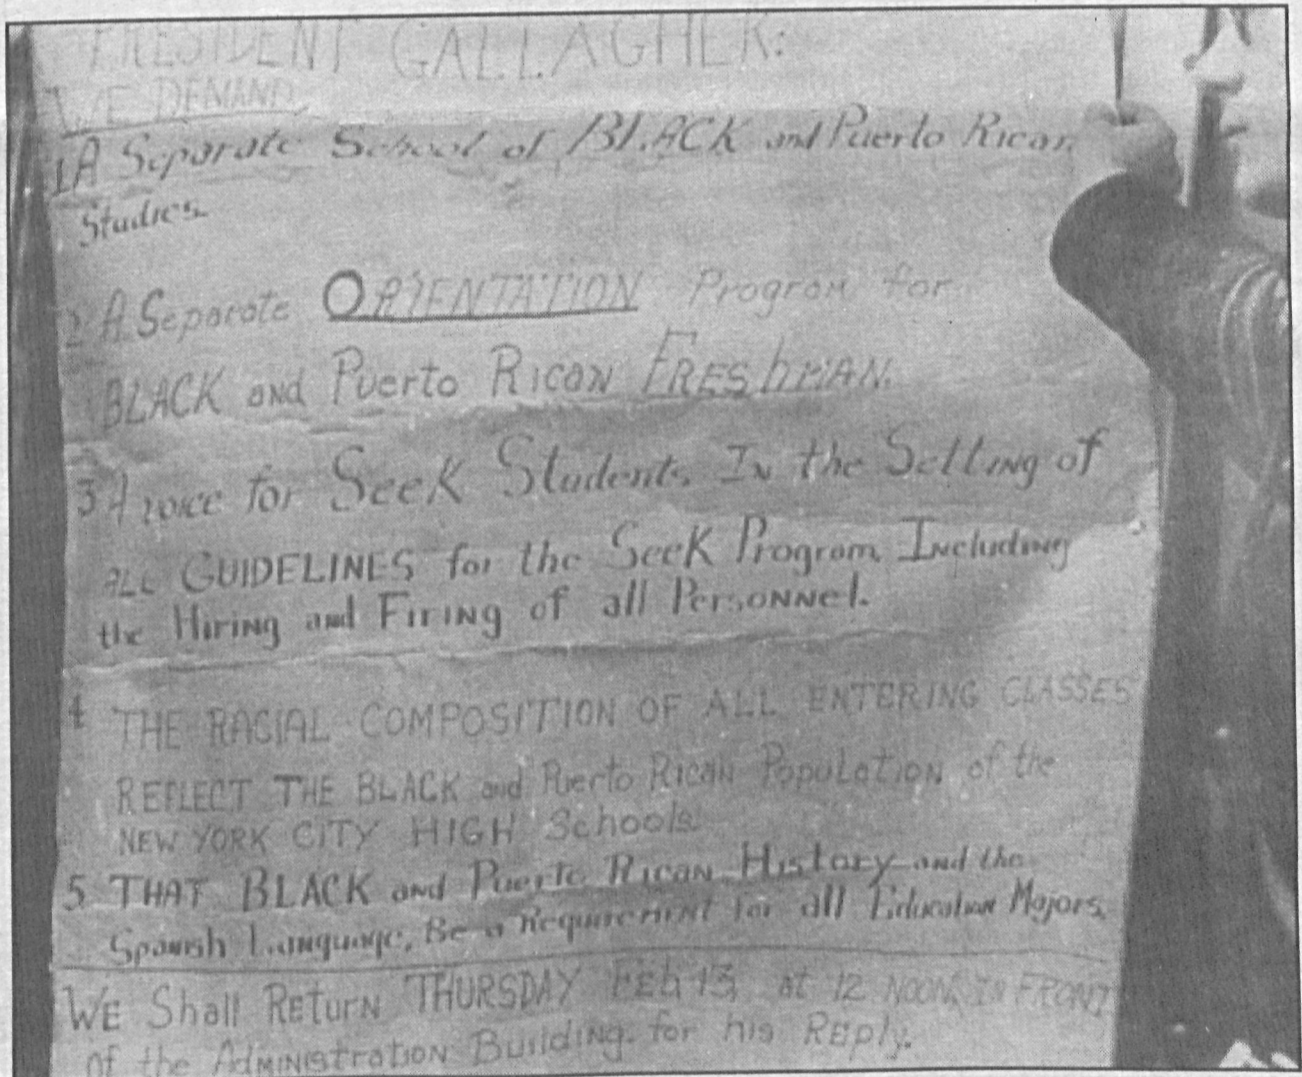 PRESIDENT GALLAGHER:
WE DEMAND
1 A Separate School of BLACK and Puerto Rican
Studies.
2 A Separate ORIENTATION Program for
BLACK and Puerto Rican FRESHMAN.
3 A voice for SeeK Students, In the Setting of
all GUIDELINES for the SeeK Program, Including
the Hiring and Firing of all Personnel.
4 THE RACIAL COMPOSITION OF ALL ENTERING CLASSES
REFLECT THE BLACK and Puerto Rican Population of the
NEW YORK CITY HIGH Schools
5 THAT BLACK and Puerto Rican History and the
Spanish Language, Be a Requirement for all Education Majors.
WE Shall Return THURSDAY Feb 13, at 12 NOON, IN FRONT
of the Administration Building for his Reply.